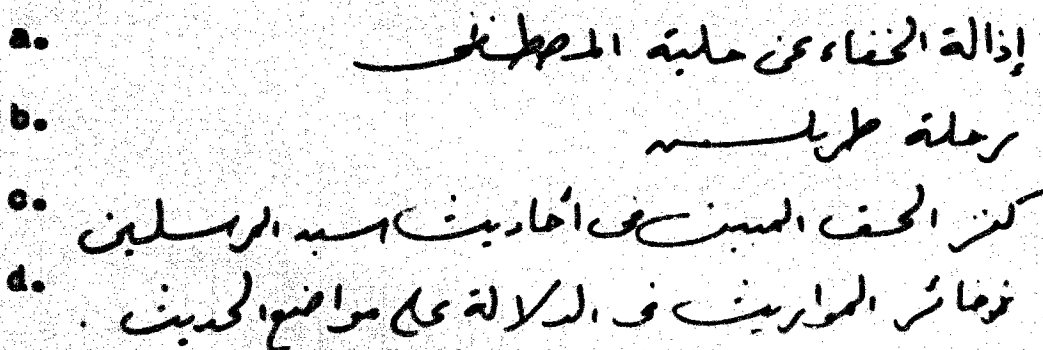 a. إذالة الخفاء عن حلية المصطفى
b. رحلة طرابلس
c. كنز الحق المبين في أحاديث سيد المرسلين
d. ذخائر المواريث في الدلالة على مواضع الحديث .